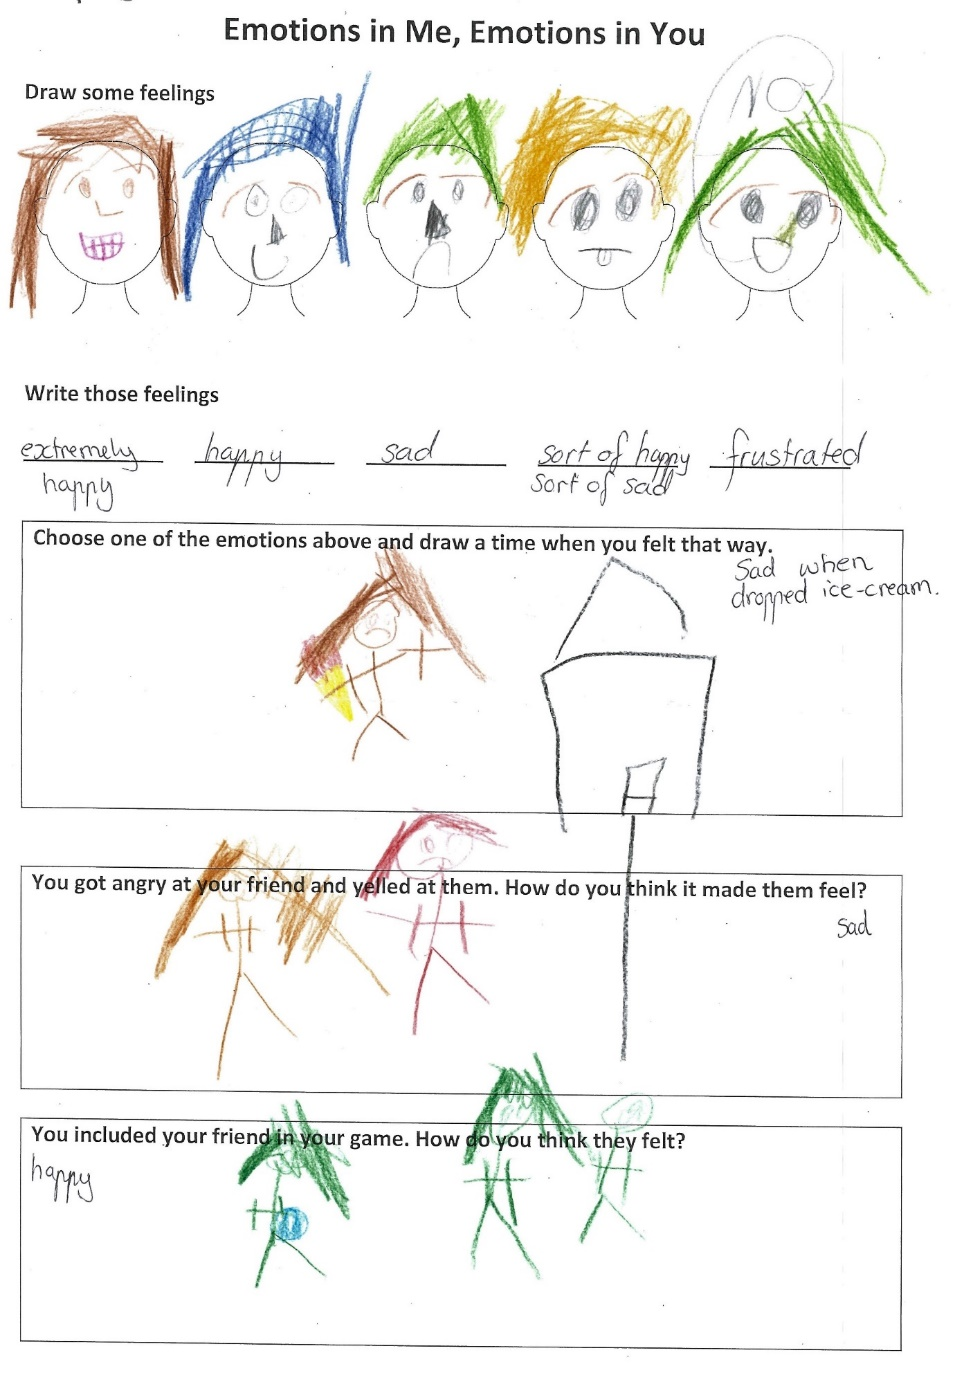 Emotions in Me, Emotions in You
Draw some feelings
NO
Write those feelings
extremely happy sad sort of happy frustrated
happy sort of sad
Choose one of the emotions above and draw a time when you felt that way.
Sad when
dropped ice-cream.
You got angry at your friend and yelled at them. How do you think it made them feel?
sad
You included your friend in your game. How do you think they felt?
happy